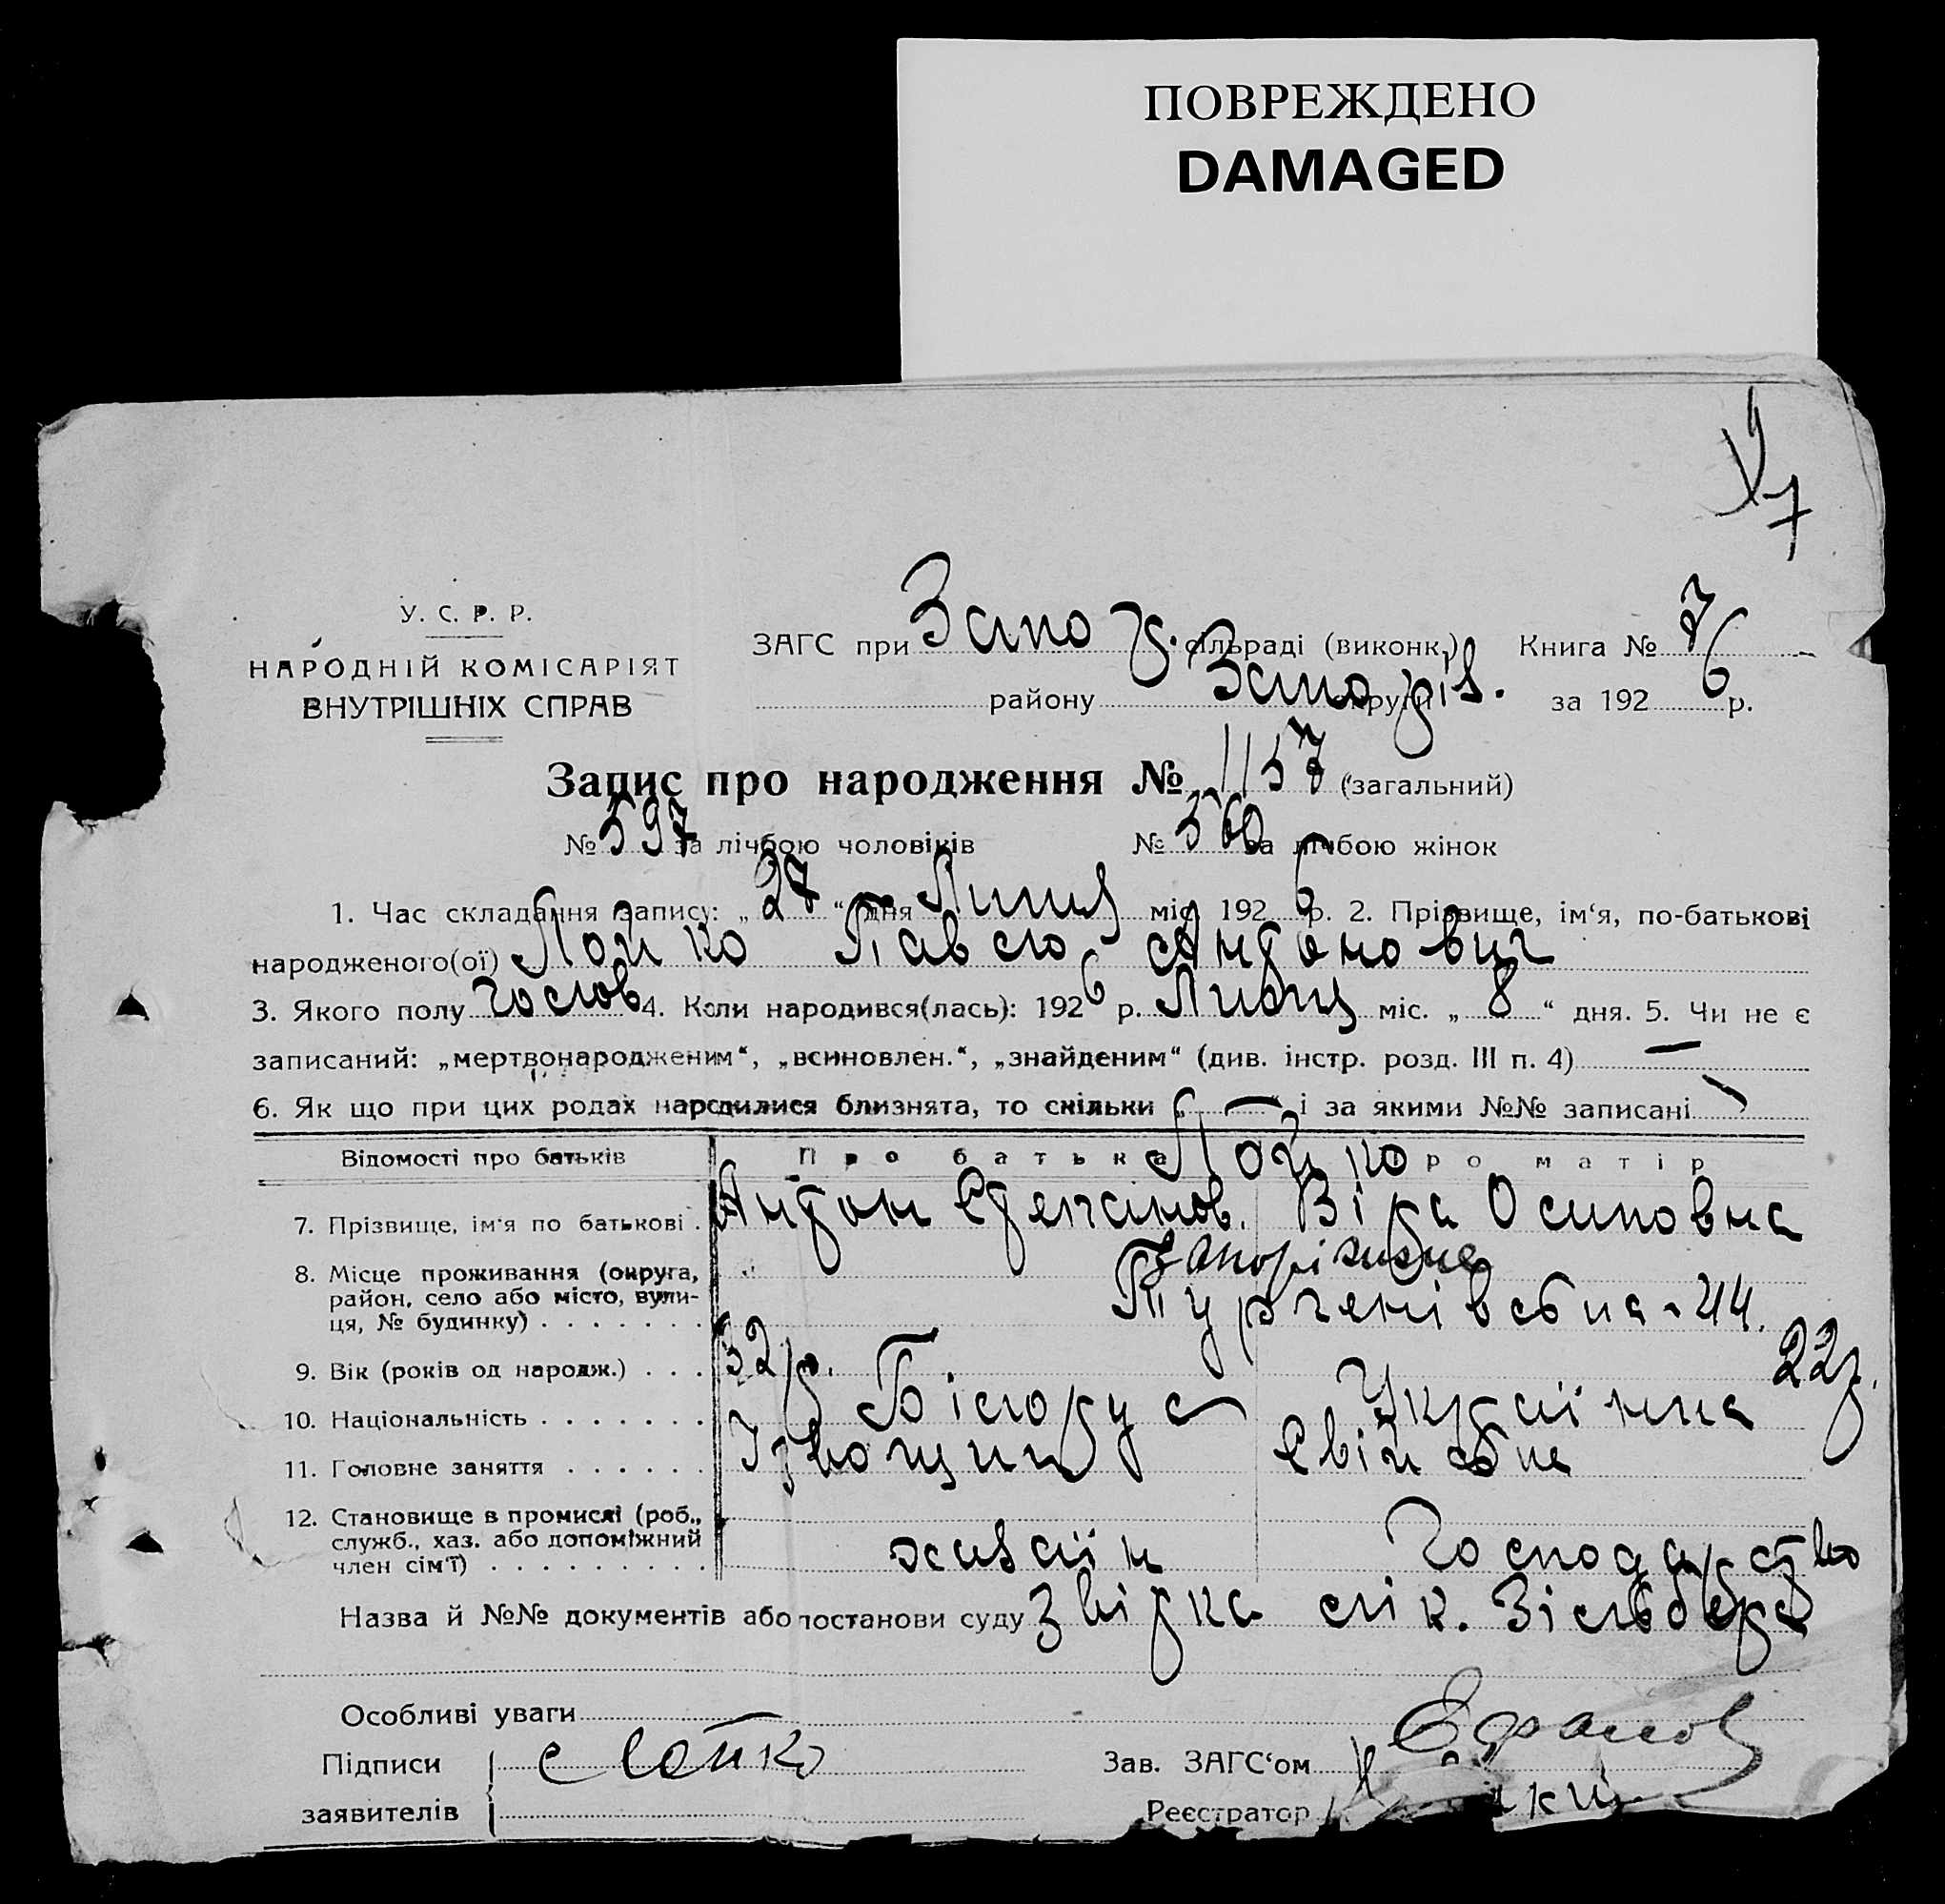 ПОВРЕЖДЕНО
DAMAGED
У. С. Р. Р.
НАРОДНІЙ КОМІСАРІЯТ
ВНУТРІШНІХ СПРАВ
ЗАГС при Запо сільраді (виконк.) Книга № 7
району Запоріз. округи за 1926 р.
Запис про народження № 1157 (загальний)
№ 597 за лічбою чоловіків № 560 за лічбою жінок
1. Час складання запису: „27“ дня Липця міс. 1926 р. 2. Прізвище, ім‘я, по-батькові
народженого(ої) Лойко Павло Антонович
3. Якого полу чолов 4. Коли народився(лась): 1926 р. Липця міс. „8“ дня. 5. Чи не є
записаний: „мертвонародженим“, „всиновлен.“, „знайденим“ (див. інстр. розд. III п. 4) —
6. Як що при цих родах народилися близнята, то скільки „—“ і за якими №№ записані
Відомості про батьків Про батька Лойко Про матір
7. Прізвище, ім‘я по батькові. Антон Степанов. Віра Осиповна
8. Місце проживання (округа, Запоріжжя
район, село або місто, вули-
ця, № будинку) . . . . . . . Тургенівська 44.
9. Вік (років од народж.) . . . 32 р. 22 р.
10. Національність . . . . . . . Білорус Українка
11. Головне заняття . . . . . . Ізвощик Свійське
12. Становище в промислі (роб.,
служб., хаз. або допоміжний хазяїн Господарство
член сім‘ї) . . . . . . . . .
Назва й №№ документів або постанови суду Звідка лік. Зільбера
Особливі уваги
Підписи Лойко Зав. ЗАГС‘ом
заявителів Реєстратор